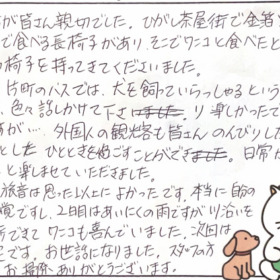 が皆さん親切でした。ひがし茶屋街で金箔
で食べる長椅子があり、そこでワンコと食べたと
の椅子を持ってきてくださいました。
片町のバスでは、犬を飼っていらっしゃるという
、色々話しかけて下さ り楽しかったで
すが…外国人の観光客も皆さんのんびりした
とした ひとときを過ごすことができ 日常か
し楽しませていただきました。
旅音は思った以上によかったです。本当に自分の
覚ですし、2日目はあいにくの雨ですが川沿いを
できてワンコも喜んでいました。次回は
です。お世話になりました。スタッフの方
お掃除ありがとうございます。